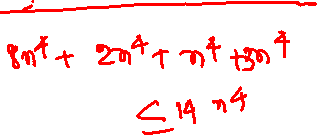 8n⁴ + 2n⁴ + n⁴ + 3n⁴
≤ 14 n⁴